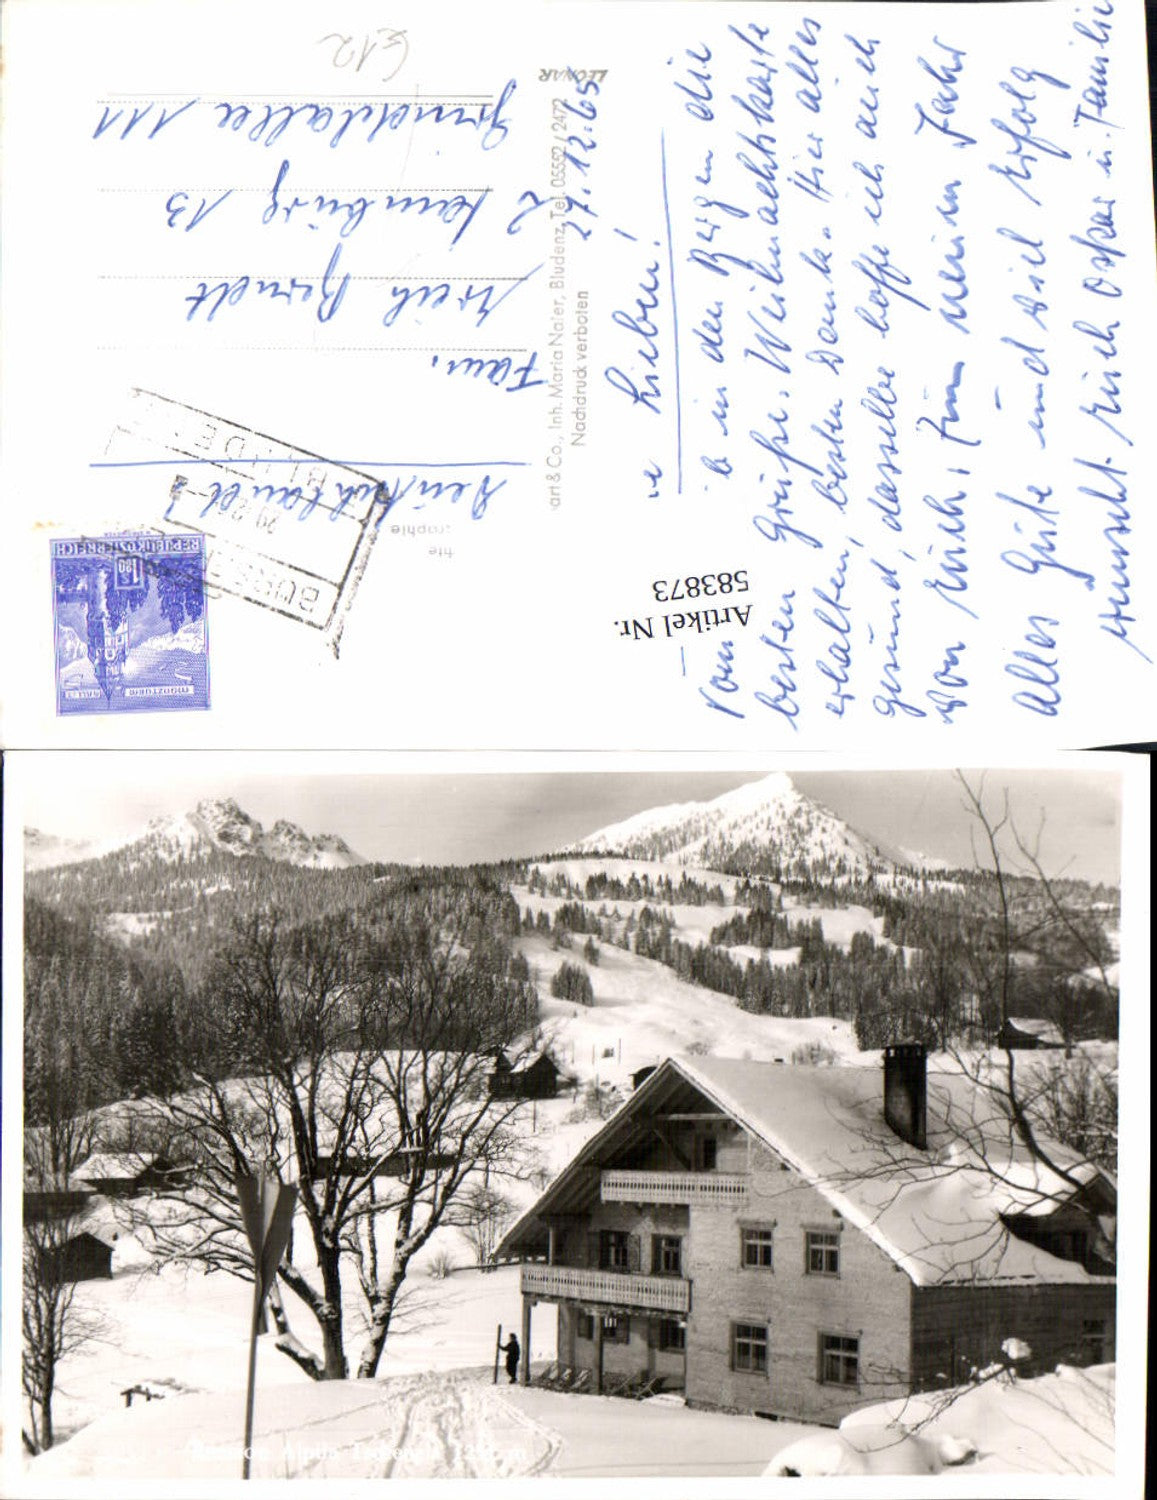 Lieben!
27.12.65
Vom in den Bergen die
besten Grüße. Weihnachtskarte
erhalten, besten Dank. Hier alles
gesund, dasselbe hoffe ich auch
von Euch. Zum neuen Jahr
Alles Gute und viel Erfolg
wünscht Euch Oskar u. Familie
Artikel Nr.
583873
LEONAR
art & Co., Inh. Maria Naier, Bludenz, Tel. 05552 / 2472
Nachdruck verboten
Fam.
Berndt
2 Hamburg 13
Grindelallee 111
Deutschland
REPUBLIK ÖSTERREICH
1.80
MÜNZTURM
HALL I. T.
BLUDE
BÜRS
Pension Alpina